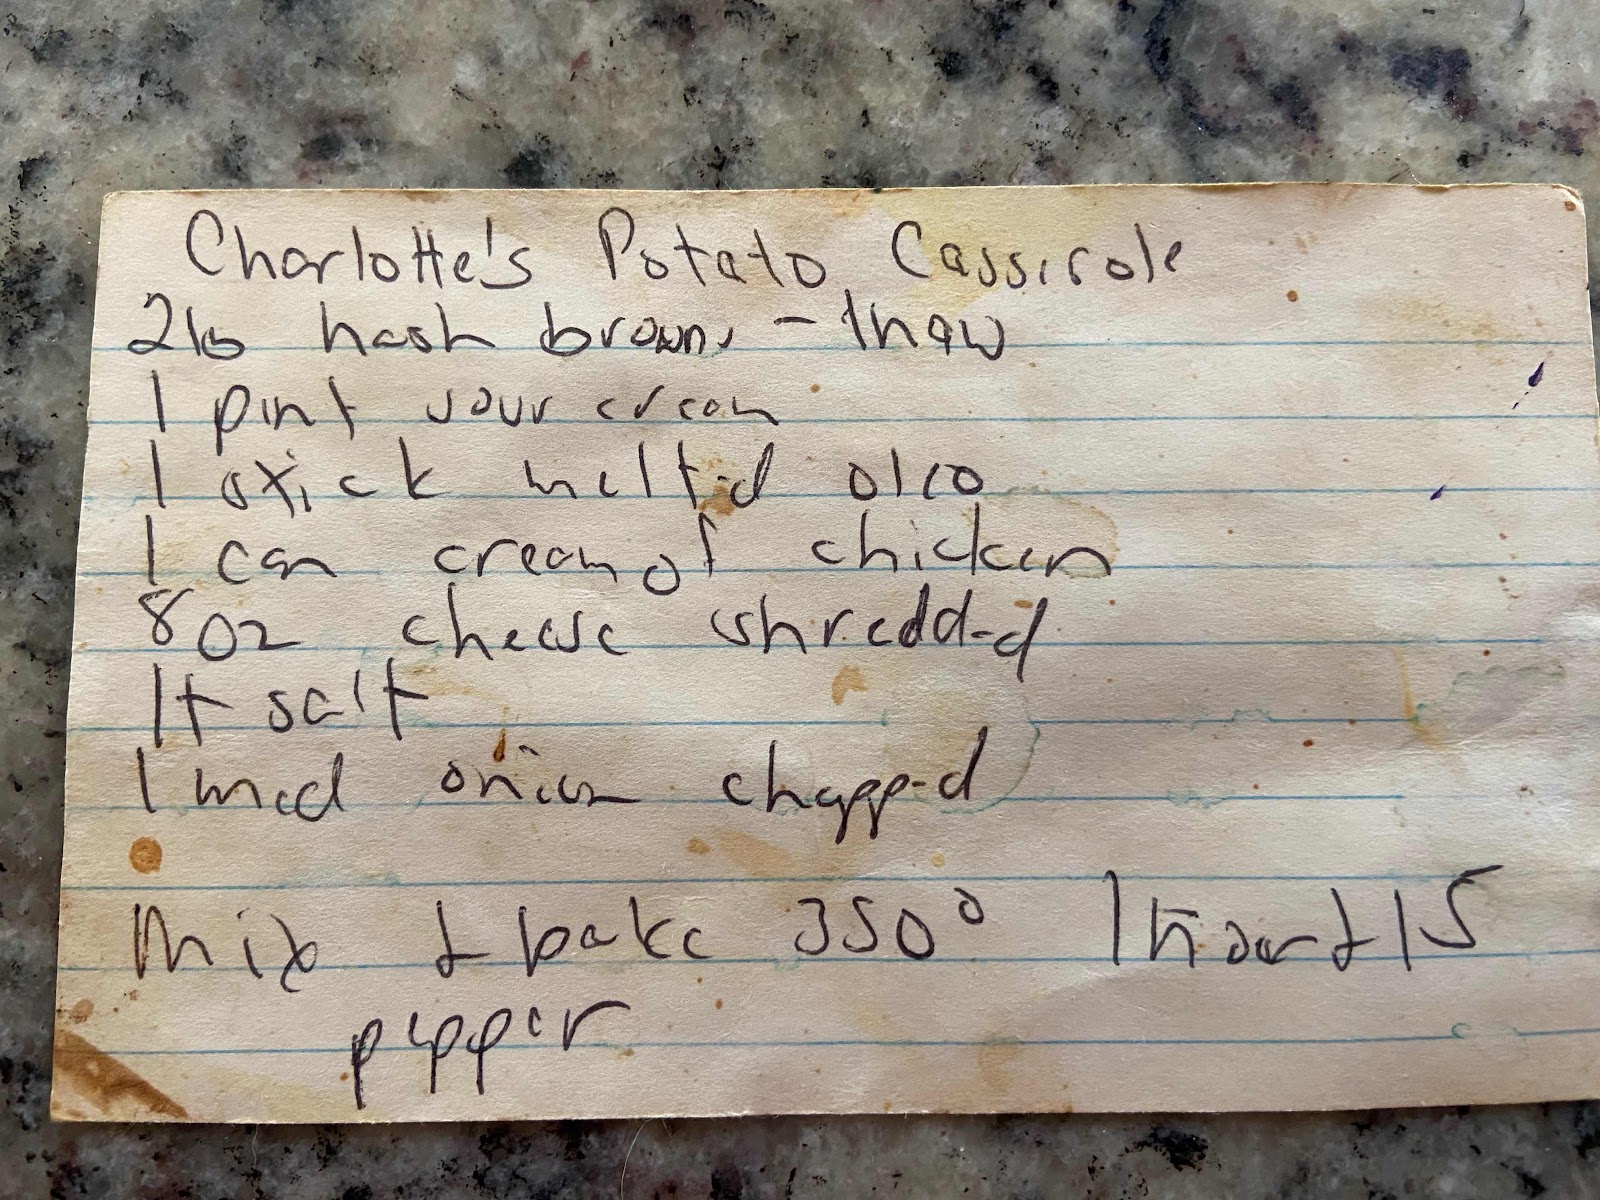 Charlotte's Potato Cassirole
2lb hash browns - thaw
1 pint sour cream
1 stick melted oleo
1 can cream of chicken
8 oz cheese shredded
1 t salt
1 med onion chopped
Mix & bake 350° 1 hour & 15
pepper